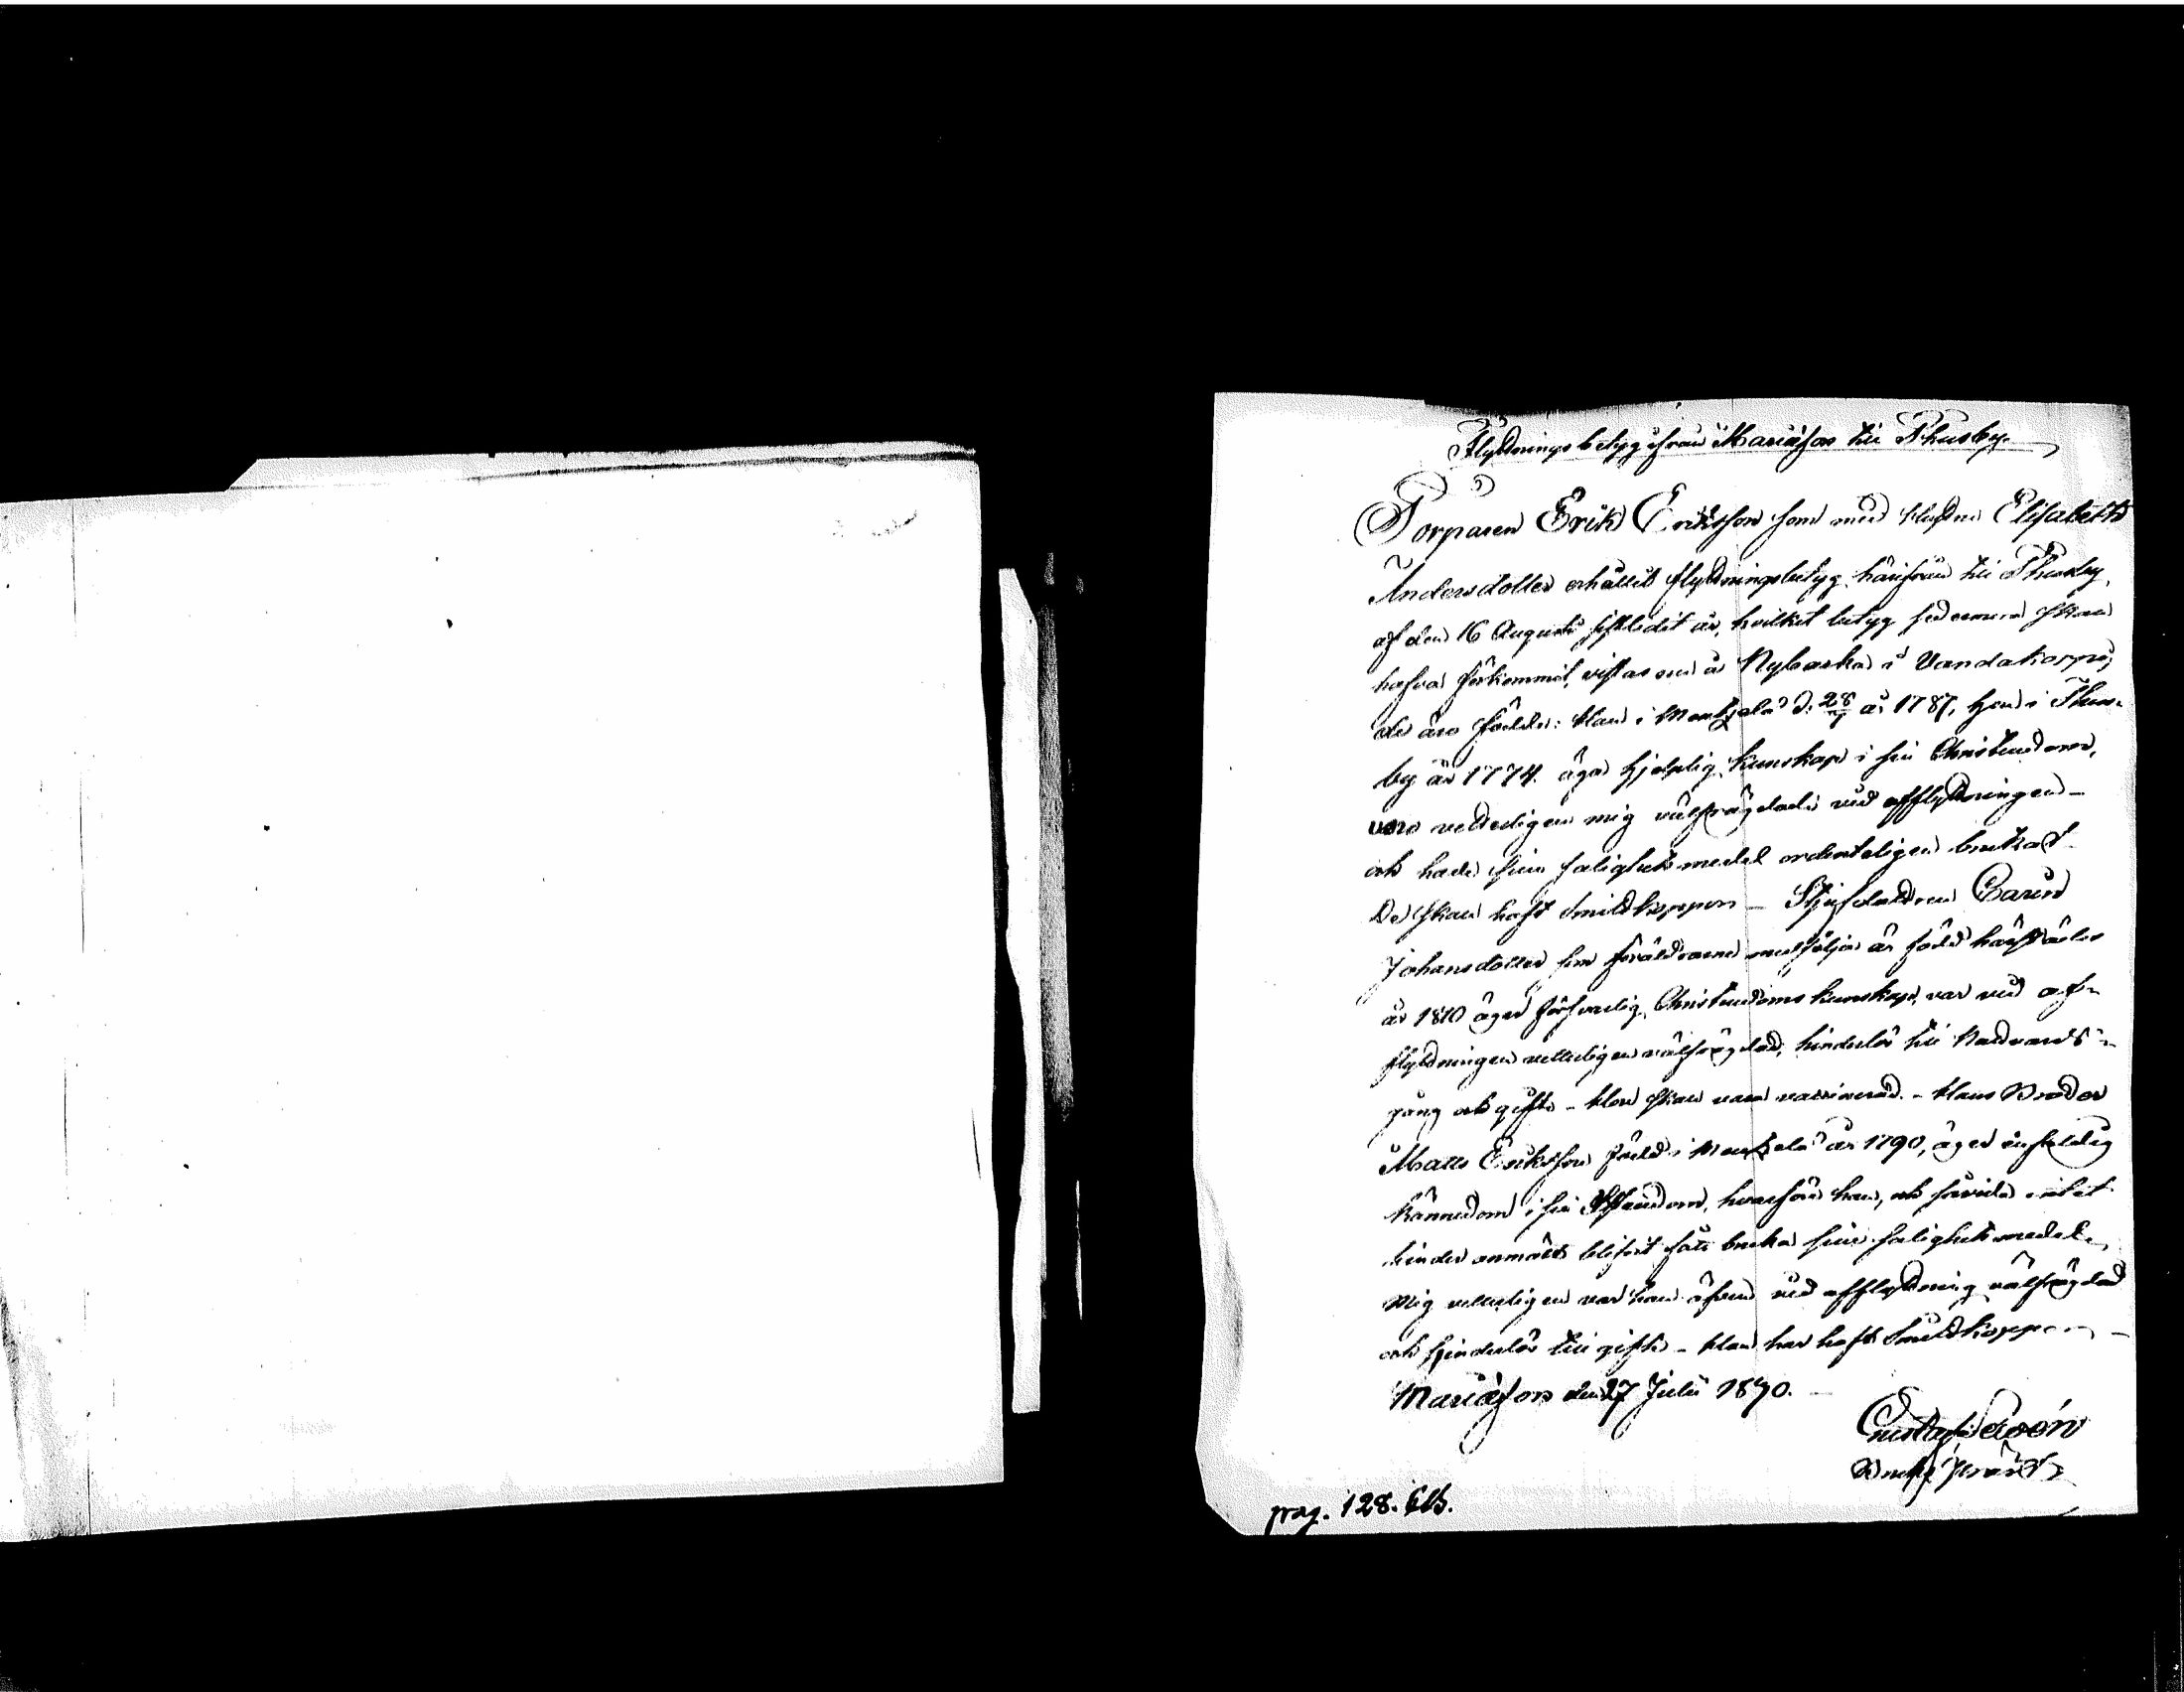 Flyttnings betyg ifrån Mariæfors till Thusby
Torparen Erik Eriksson som med Hustrun Elisabeth
Andersdotter erhållit flyttningsbetyg härifrån till Thusby,
af den 16 Augusti sistledit år, hvilket betyg sedermera skall
hafva förkommit, vistas nu å Nybacka i Vandakorpi;
de äro födde: Han i Mentzälä d. 28 år 1787, Hon i Thus-
by år 1774. äga hjelplig kunskap i sin Christendom,
voro vetterligen mig välfrägdade vid afflyttningen -
och hade sine salighetsmedel ordenteligen brukat
De skall haft Smittkoppor - Carin
Johansdotter som föräldrarne medföljer är född härstädes
år 1810 äger försvarlig Christendoms kunskap, var vid af-
flyttningen vetterligen välfrägdad, hinderlös till Nattvards-
gång och gifte - Hon skall vara vaccinerad. - Hans Broder
Matts Eriksson född i Mentzälä år 1790, äger enfaldig
kännedom i sin Christendom, hvarföre han, och såvida intet
hinder anmälts blifvit fått bruka sine salighetsmedel.
Mig vetterligen var han äfven vid afflyttning välfrägdad
och hinderlös till gifte - Han har haft Smittkoppor -
Mariæfors den 27 Julii 1830.
Gustaf
Bruks
pag. 128.